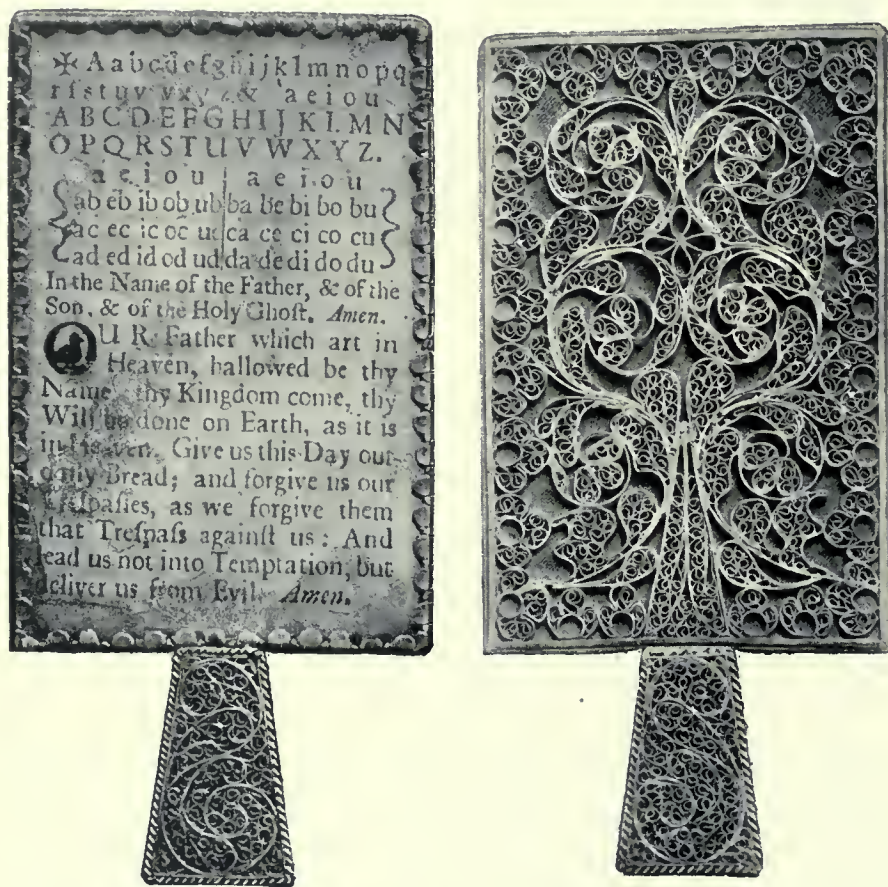 ✠ A a b c d e f g h i j k l m n o p q
r ſ s t u v w x y z & a e i o u
A B C D E F G H I J K L M N
O P Q R S T U V W X Y Z.
a e i o u | a e i o u
ab eb ib ob ub ba be bi bo bu
ac ec ic oc uc ca ce ci co cu
ad ed id od ud da de di do du
In the Name of the Father, & of the
Son, & of the Holy Ghoſt. Amen.
OUR Father which art in
Heaven, hallowed be thy
Name, thy Kingdom come, thy
Will be done on Earth, as it is
in Heaven. Give us this Day our
daily Bread; and forgive us our
Treſpaſſes, as we forgive them
that Treſpaſs againſt us: And
lead us not into Temptation, but
deliver us from Evil. Amen.